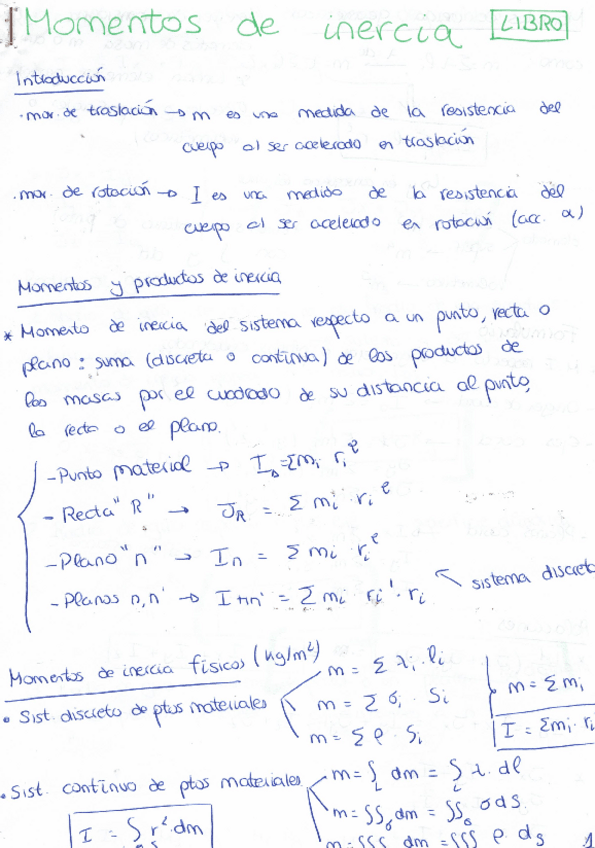 Momentos de inercia LIBRO
Introducción
· mov. de traslación → m es una medida de la resistencia del
cuerpo al ser acelerado en traslación
· mov. de rotación → I es una medida de la resistencia del
cuerpo al ser acelerado en rotación (acc. α)
Momentos y productos de inercia
* Momento de inercia del sistema respecto a un punto, recta o
plano: suma (discreta o contínua) de los productos de
las masas por el cuadrado de su distancia al punto,
la recta o el plano.
- Punto material → I₀ = Σmᵢ rᵢ²
- Recta "R" → JR = Σ mᵢ · rᵢ²
- Plano "n" → In = Σ mᵢ · rᵢ²
- Planos n, n' → I+nn' = Σ mᵢ · rᵢ' · rᵢ
sistema discreto
Momentos de inercia físicos (kg/m²)
• Sist. discreto de ptos materiales
m = Σ λᵢ · lᵢ
m = Σ σᵢ · Sᵢ
m = Σ ρ · Sᵢ
m = Σ mᵢ
I = Σmᵢ · rᵢ
• Sist. contínuo de ptos materiales
m = ∫L dm = ∫L λ · dl
m = ∫∫s dm = ∫∫s σ ds
m = ∫∫∫ dm = ∫∫∫ ρ · ds
I = ∫ r² · dm
1